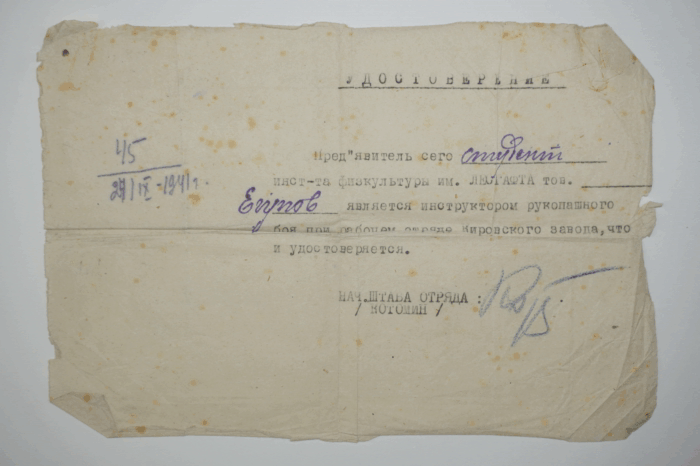 УДОСТОВЕРЕНИЕ
45
29/IX-1941г.
Пред"явитель сего студент
инст-та физкультуры им. ЛЕСГАФТА тов.
Егупов является инструктором рукопашного
боя при рабочем отряде Кировского завода, что
и удостоверяется.
НАЧ.ШТАБА ОТРЯДА :
/ КОТОМИН /